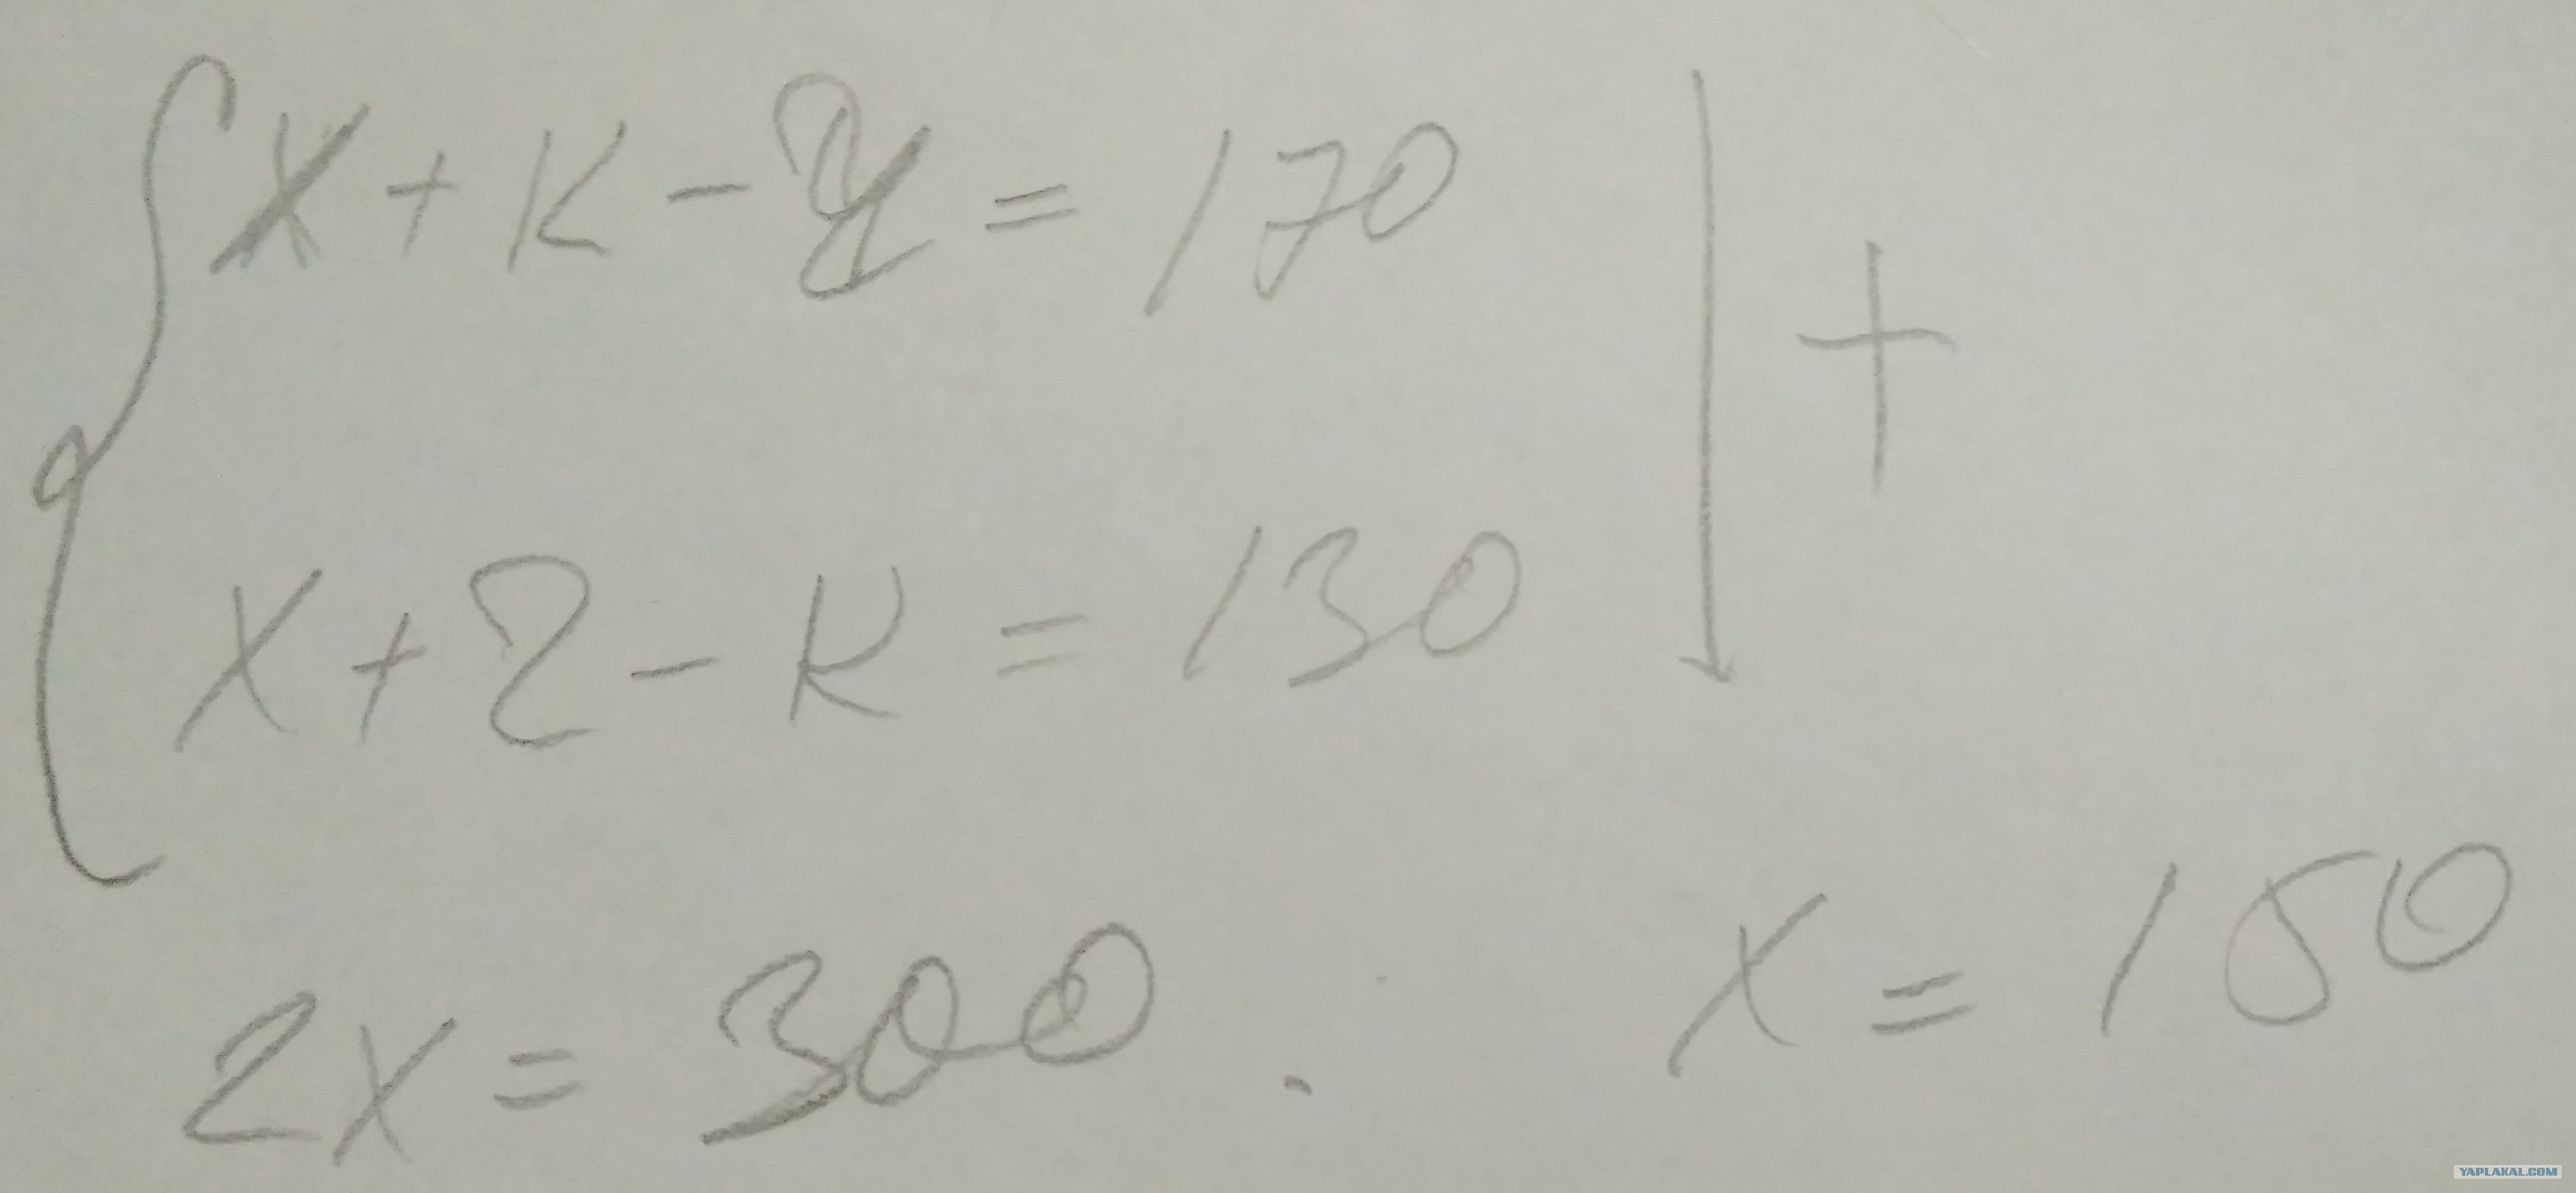 x + к - г = 170
+
x + г - к = 130
2x = 300. x = 150
YAPLAKAL.COM